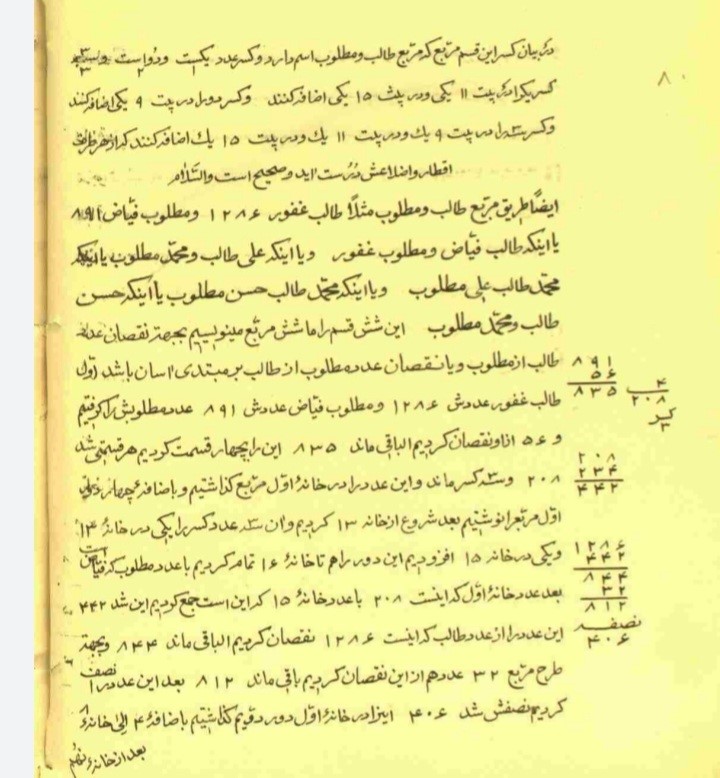 در بیان کسر این قسم مربع که مربع طالب و مطلوب اسم دارد و کسر عدد یکست و دو است و سه
کسر یکرا در بیت ۱۱ یکی و در بیت ۱۵ یکی اضافه کنند و کسر دو را در بیت ۹ یکی اضافه کنند
و کسر سه را در بیت ۹ یك و در بیت ۱۱ یك و در بیت ۱۵ یك اضافه کنند که از هر طرف
اقطار و اضلاعش درست اید و صحیح است والسّلام
ایضًا طریق مربع طالب و مطلوب مثلًا طالب غفور ۱۲۸۶ و مطلوب فیّاض ۸۹۱
یا اینکه طالب فیّاض و مطلوب غفور و یا اینکه علی طالب و محمّد مطلوب یا اینکه
محمّد طالب علی مطلوب و یا اینکه محمّد طالب حسن مطلوب یا اینکه حسن
طالب و محمّد مطلوب این شش قسم را ما شش مربع مینویسیم بجهة نقصان عدد
طالب از مطلوب و یا نقصان عدد مطلوب از طالب بر مبتدی اسان باشد اول
طالب غفور عددش ۱۲۸۶ و مطلوب فیّاض عددش ۸۹۱ عدد مطلوبش را گرفتیم
و ۵۶ از او نقصان کردیم الباقی ماند ۸۳۵ این را بچهار قسمت کردیم هر قسمتی شد
۲۰۸ و سه کسر ماند و این عدد را در خانهٔ اوّل مربع گذاشتیم و باضافهٔ چهار
اوّل مربع را نوشتیم بعد شروع از خانه ۱۳ کردیم و ان سه عدد کسر را یکی در خانهٔ ۱۳
و یکی در خانه ۱۵ افزودیم این دور را هم تا خانهٔ ۱۶ تمام کردیم با عدد مطلوب که فیّاض است
بعد عدد خانهٔ اوّل که اینست ۲۰۸ با عدد خانهٔ ۱۵ که این است جمع کردیم این شد ۴۴۲
این عدد را از عدد طالب که اینست ۱۲۸۶ نقصان کردیم الباقی ماند ۸۴۴ و بجهة
طرح مربع ۳۲ عدد هم از این نقصان کردیم باقی ماند ۸۱۲ بعد این عدد را نصف
کردیم نصفش شد ۴۰۶ اینرا در خانهٔ اوّل دور دویم گذاشتیم باضافهٔ ۴ الی خانهٔ ۸
بعد از خانهٔ نهم
۸۰
۸۹۱
۵۶
۸۳۵
۴
۲۰۸
کسر
۳
۲۰۸
۲۳۴
۴۴۲
۱۲۸۶
۴۴۲
۸۴۴
۳۲
۸۱۲
نصف
۴۰۶